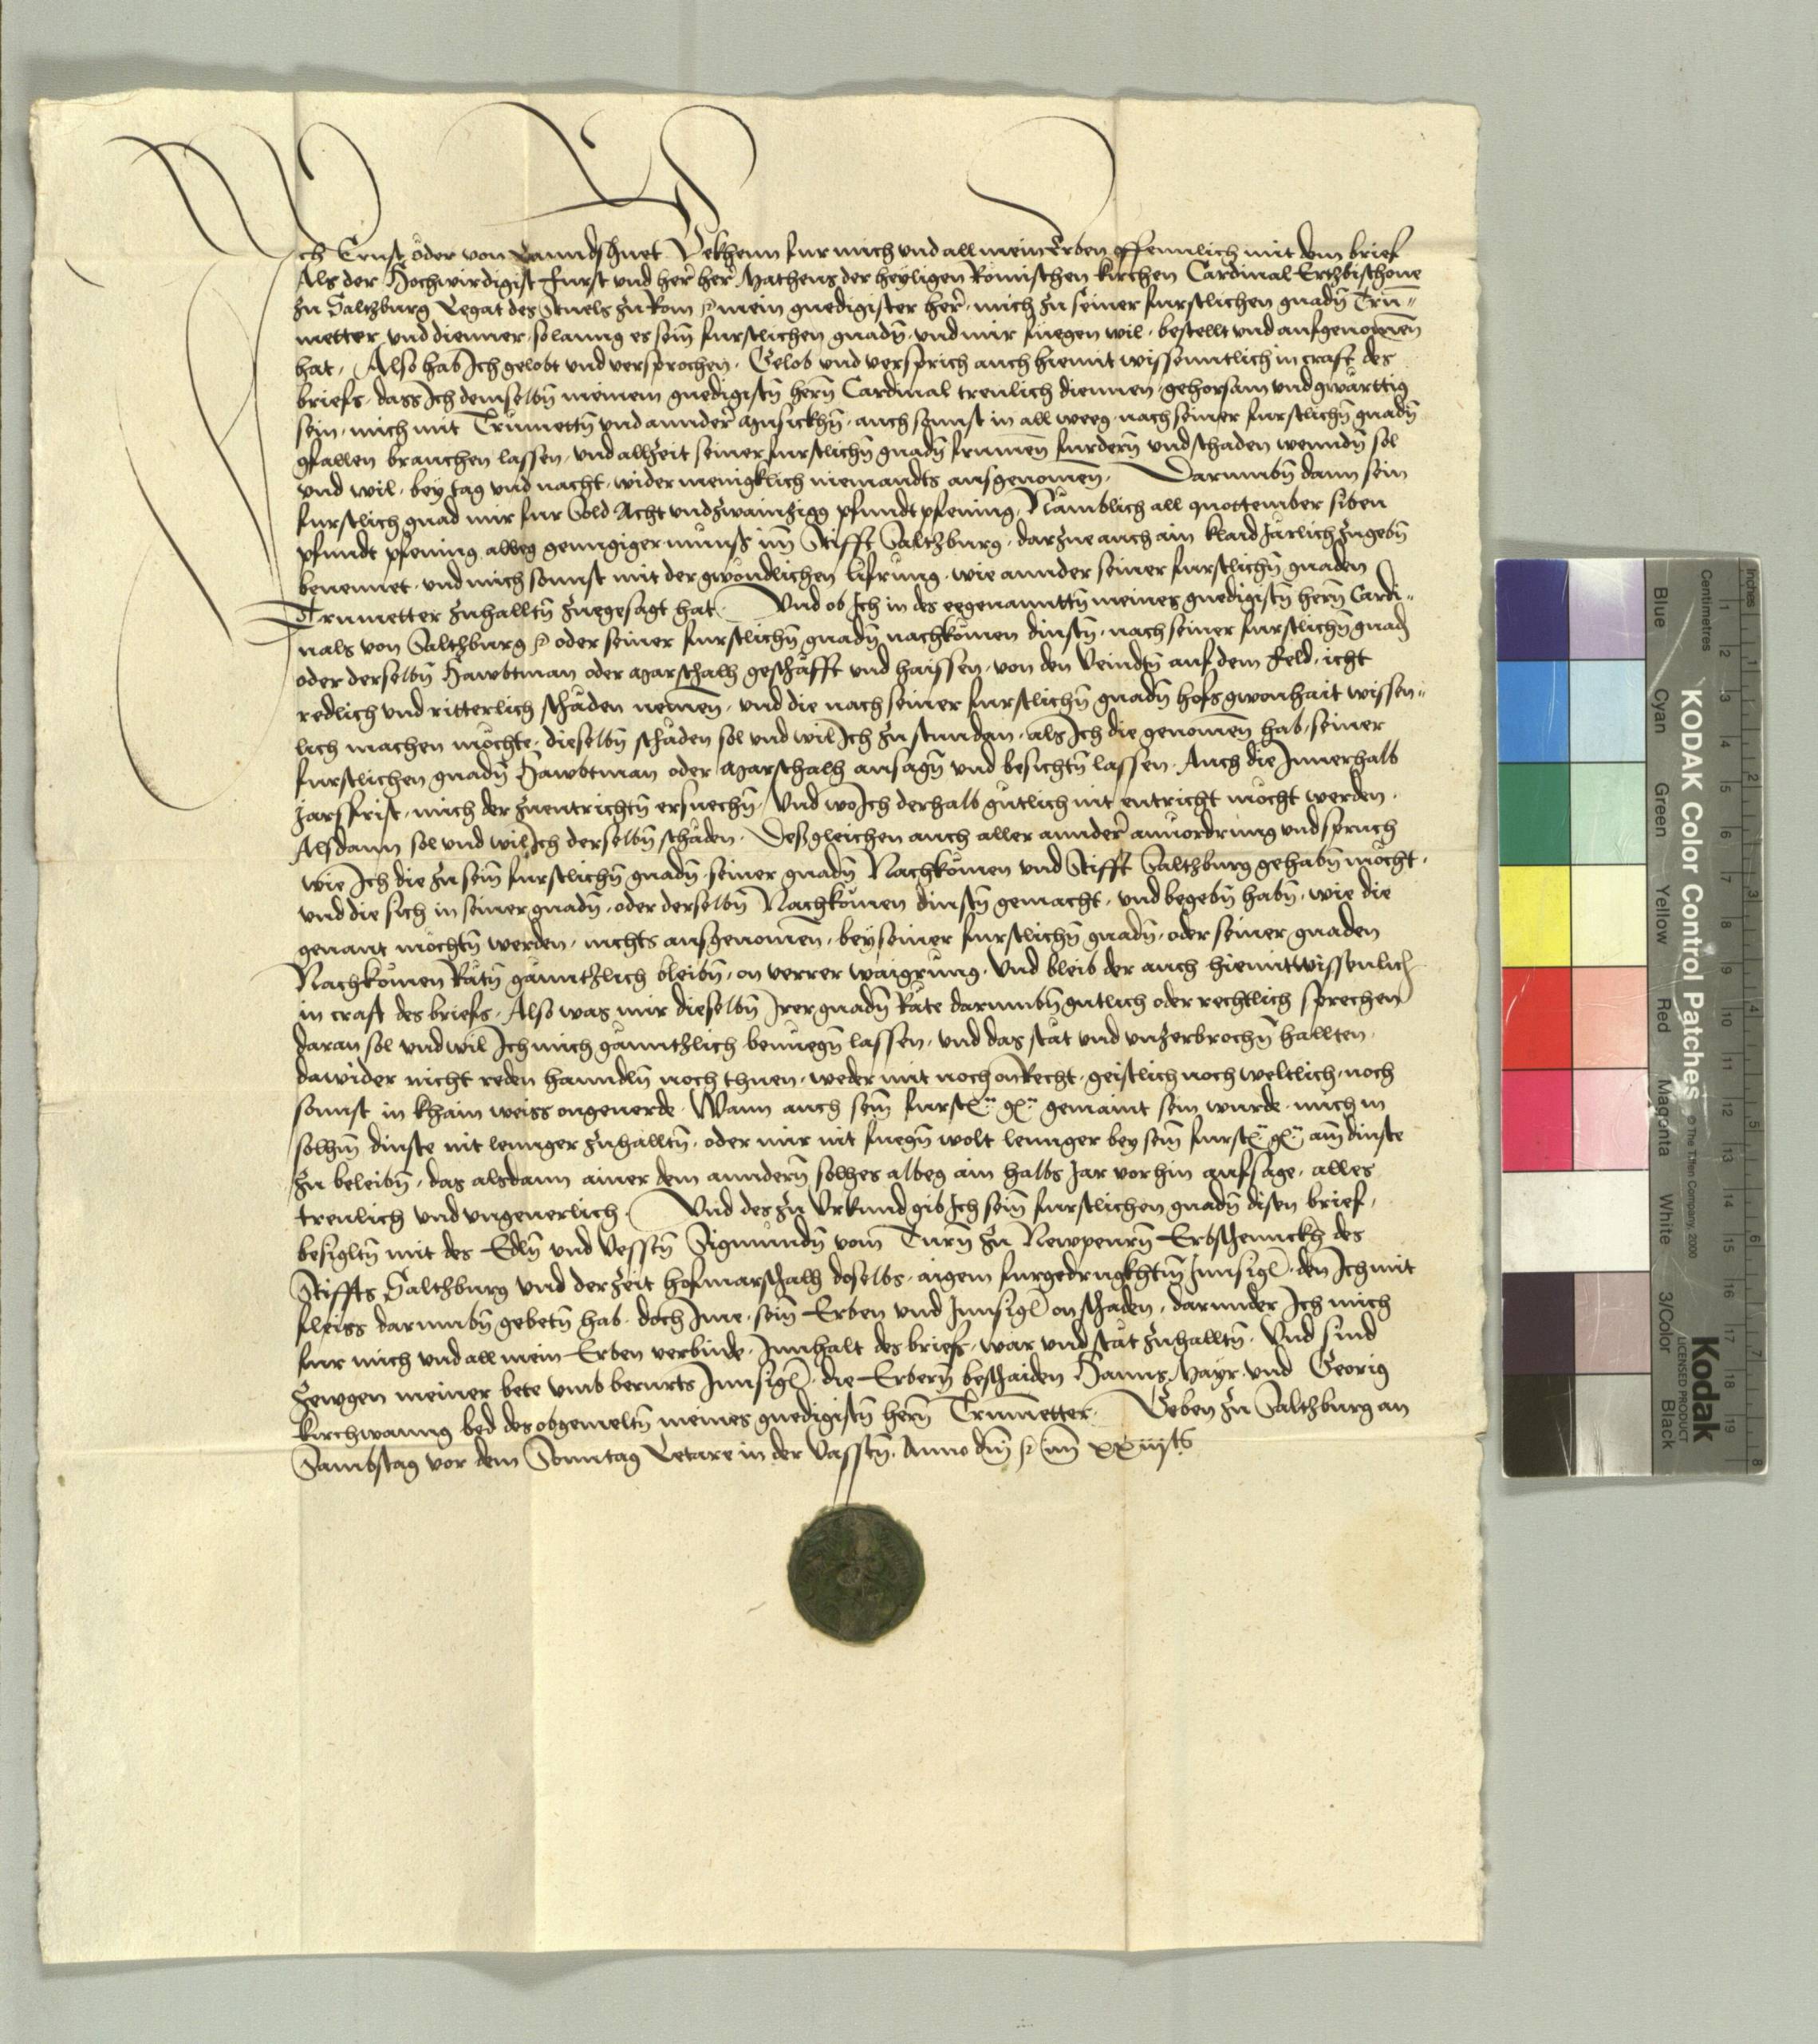 Ich Ernst oder von Lanndshuet Bekhenn fur mich und all mein Erben offennlich mit dem brief
Als der Hochwirdigist Furst und her̃ her̃ Matheus der heyligen Romischen kirchen Cardinal Ertzbischoue
zu Saltzburg Legat des Stuels zu Rom ꝛc mein gnedigister her̃, mich zu seiner furstlichen gnadn̄ Tru¯=
metter und dienner, solanng es sein̄ furstlichen gnadn̄ und mir fuegen wil, bestellt und aufgenomen̄
hat, Also hab Ich gelobt und versprochen, Gelob und versprich auch hiemit wissenntlich in craft des
briefs, dass Ich demselbn̄ meinem gnedigistn̄ hern̄ Cardinal treulich diennen, gehorsam und gwarttig
sein, mich mit Trumettn̄ und annder̃ Musickhn̄, auch sunst in all weeg, nach seiner furstlichn̄ gnadn̄
gfallen brauchen lassen, und allzeit seiner furstlichn̄ gnadn̄ frumen̄ furdern̄ und schaden wenndn̄ sol
und wil, bey tag und nacht, wider menigklich niemandts ausgenomen̄. Darumbn̄ dann sein
furstlich gnad mir fur Sold Acht und zwainzigg pfundt pfening, Namblich all quottember siben
pfundt pfening albeg genngiger munss im̄ Stifft Saltzburg, darzue auch ain klaid Jarlich zugebn̄
benennet, und mich sonnst mit der gwondlichen lifrung, wie annder seiner furstlichn̄ gnaden
Trumetter zuhalltn̄ zuegesagt hat. Und ob Ich in des eegenanntn̄ meines gnedigistn̄ hern̄ Cardi=
nals von Saltzburg ꝛc oder seiner furstlichn̄ gnadn̄ nachkomen dinstn̄, nach seiner furstlichn̄ gnad
oder derselbn̄ Hawbtman oder Marschalh geschafft und haissen, von den Veindtn̄ auf dem Feld, icht
redlich und ritterlich schaden nemen̄, und die nach seiner furstlichn̄ gnadn̄ hofsgwonhait wissen=
lich machen mochte, dieselbn̄ schaden sol und wil Ich zu stundan, als Ich die genomen̄ hab, seiner
furstlichen gnadn̄ Hawbtman oder Marschalh ansagn̄ und besichtn̄ lassen. Auch die Innerhalb
Jarsfrist, mich der zuentrichtn̄ ersuechn̄. Und wo Ich derhalb gutlich nit entricht mocht werden,
Alsdann sol und wil Ich derselbn̄ schaden, Desgleichen auch aller annder̃ anuordrung und spruch
wie Ich die zu sein̄ furstlichn̄ gnadn̄, seiner gnadn̄ Nachkomen und Stifft Saltzburg gehabn̄ mocht,
und die sich in seiner gnadn̄, oder derselbn̄ Nachkomen dinstn̄ gemacht, und begebn̄ habn̄, wie die
genant mochtn̄ werden, nichts ausgenomen̄, bey seiner furstlichn̄ gnadn̄, oder seiner gnaden
Nachkomen Rätn̄ gänntzlich bleibn̄, on verrer waigrung. Und bleib der auch hiemit wissenlich
in craft des briefs. Also was mir dieselbn̄ Irer gnadn̄ Räte darumbn̄ gutlich oder rechtlich sprechen
daran sol und wil Ich mich gänntzlich benuegn̄ lassen, und das stät und unzerbrochn̄ hallten
dawider nicht reden hanndln̄ noch thuen, weder mit noch on Recht, geistlich noch weltlich, noch
sonnst in khain weiss ongeuerde. Wann auch sein̄ furstl. g. gemaint sein wurde, mich in
solhm̄ dinste nit lennger zuhalltn̄, oder mir nit fuegn̄ wolt lennger bey sein̄ furstl. g. am̄ dinste
zu beleibn̄, das alsdann ainer dem anndern̄ solhes albeg ain halbs Jar vorhin aufsage, alles
treulich und ungeuerlich. Und des zu Urkund gib Ich sein̄ furstlichen gnadn̄ disen brief,
besigltn̄ mit des Edln̄ und Vesstn̄ Sigmundn̄ vom̄ Turn̄ zu Newpeurn̄ Erbschennckh des
Stiffts Saltzburg und derzeit hofmarschalh doselbs, aigem furgedrugkhtm̄ Innsigl, den Ich mit
fleiss darumbn̄ gebetn̄ hab, doch Ime, sein̄ Erben und Innsigl on schaden, darunder Ich mich
fur mich und all mein Erben verbinde, Innhalt des briefs, war und stät zuhalltn̄. Und sind
Zewgen meiner bete umb berurts Innsigl, die Erbern̄ beschaiden Hanns Mayr und Georig
Kirchwanng bed des obgemeltn̄ meines gnedigistn̄ hern̄ Trumetter. Geben zu Saltzburg an
Sambstag vor dem Sonntag Letare in der Vasstn̄, Anno dn̄i ꝛc im̄ xxiiijts
KODAK Color Control Patches
© The Tiffen Company, 2000
Kodak
LICENSED PRODUCT
Inches
Centimetres
Blue Cyan Green Yellow Red Magenta White 3/Color Black
1 2 3 4 5 6 7 8
1 2 3 4 5 6 7 8 9 10 11 12 13 14 15 16 17 18 19